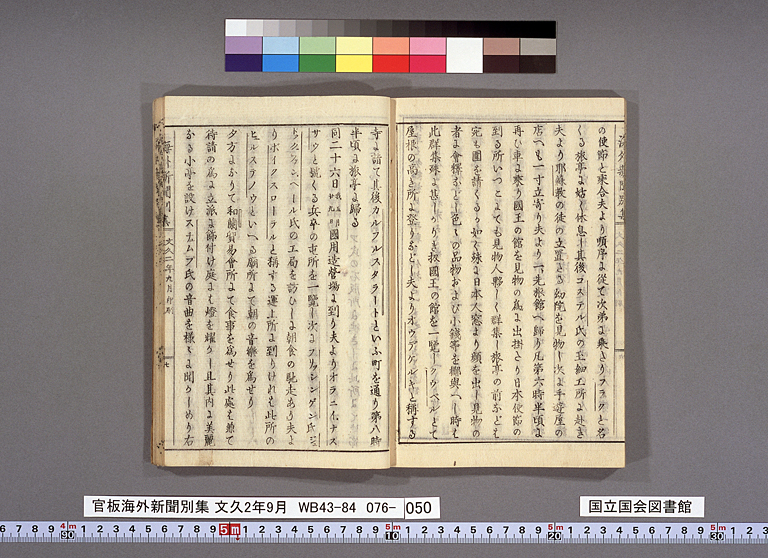 の使節と乗合夫より順序に從て次弟に乗きりフラックと名
くる旅亭に姑く休息し其後コステル氏の玉細工所に赴き
夫より耶蘇教の徒の立置きる幼院を見物し次に手遊屋の
店へも一寸立寄り夫より一先旅館へ歸り凡第六時半頃に
再ひ車に乗り國王の館を見物の為に出掛たり日本使節の
到る所いつとても見物人夥しく群集し旅亭の前などにも
宛も圍を請くるか如く殊に日本人窓より顔を出し見物の
者に會釋などし色々の品物および小錢等を擲與へし時も
此群集殊に甚しかりき扱國王の館を一覽しクウベルとて
屋根の高き所に登りなどし夫よりオウアケルキと稱する
寺に詣て其後カルフルスタラートといふ町を通り第八時
半頃に旅亭に歸る
同二十六日 國用造營場に到り夫よりオラニイナス
サウと號くる兵卒の屯所を一覽し次にフリッシンゲン氏
ヘール氏の工局を訪ひしに朝食の馳走あり夫よ
りボイクスローラルと稱する運上所に到りけれは此所の
ヒルステノウといへる廟所にて朝の音樂を為せり
夕方にふりて和蘭貿易會所にて食事を為せり此處を兼て
待請の為に立派に飾付け庭にも燈を耀かし且其内に美麗
なる小亭を設けスナムプ氏の音曲を様々に聞かしめり右
海外新聞別集 文久二年九月 七
官板海外新聞別集 文久2年9月 WB43-84 076-050
国立国会図書館